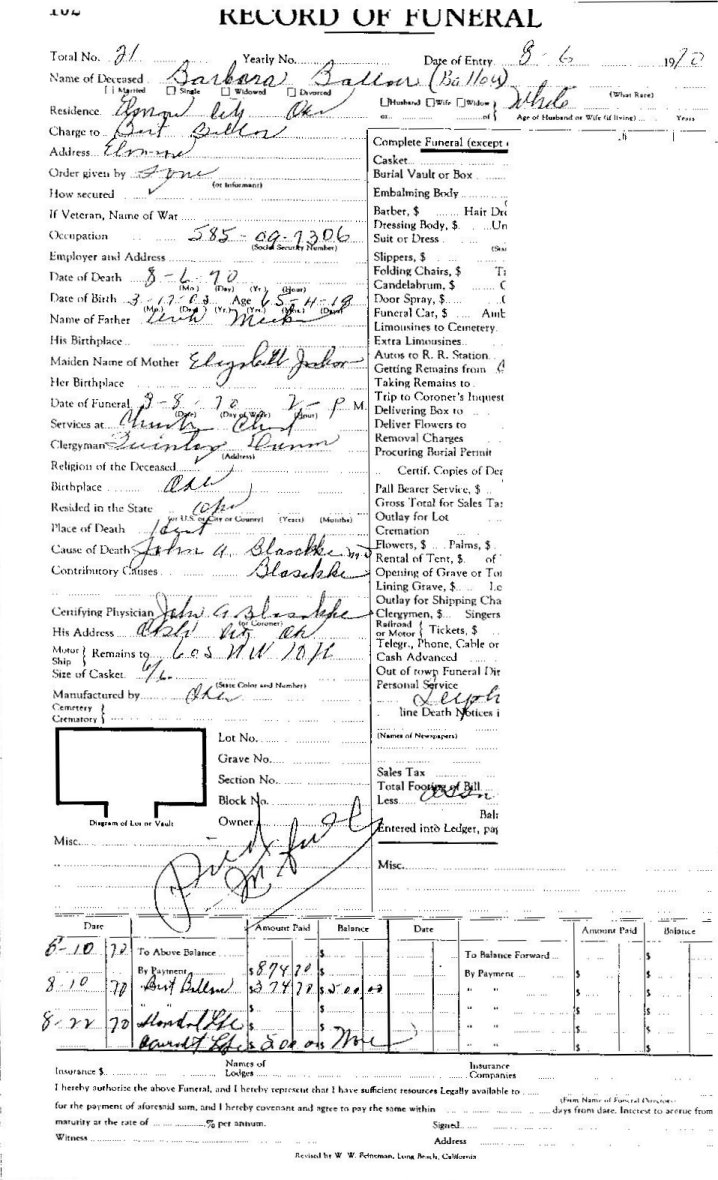 102
RECORD OF FUNERAL
Total No. 21 Yearly No. Date of Entry 8-6 1970
Name of Deceased Barbara Ballou (Ballow)
[ ] Married Single Widowed Divorced
Husband Wife Widow White (What Race)
Residence City Okla
or of Age of Husband or Wife (if living) Years
Charge to Burt
Address
Order given by
(or Informant)
How secured
If Veteran, Name of War
Occupation 585-09-7306
(Social Security Number)
Employer and Address
Date of Death 8-6-70
(Mo.) (Day) (Yr.) (Hour)
Date of Birth 3-17-03 Age
(Mo.) (Day) (Yr.) (Yrs.) (Mos.) (Days)
Name of Father
His Birthplace
Maiden Name of Mother Elizabeth
Her Birthplace
Date of Funeral 8-8-70 2- P M.
(Date) (Day of Week) (Hour)
Services at Church
Clergyman
(Address)
Religion of the Deceased
Birthplace Okla
Resided in the State
(or U.S. or City or County) (Years) (Months)
Place of Death
Cause of Death John A. Blaschke MD
Contributory Causes Blaschke
Certifying Physician John A Blaschke
(or Coroner)
His Address City Ok
Motor Ship } Remains to 605 NW 10th
Size of Casket
(State Color and Number)
Manufactured by
Cemetery
Crematory
Lot No.
Grave No.
Section No.
Block No.
Owner
Diagram of Lot or Vault
Misc.
Paid in full
Complete Funeral (except
Casket
Burial Vault or Box
Embalming Body
Barber, $ Hair Dre
Dressing Body, $ Un
Suit or Dress
Slippers, $
Folding Chairs, $
Candelabrum, $
Door Spray, $
Funeral Car, $ Amb
Limousines to Cemetery
Extra Limousines
Autos to R. R. Station
Getting Remains from
Taking Remains to
Trip to Coroner's Inquest
Delivering Box to
Deliver Flowers to
Removal Charges
Procuring Burial Permit
Certif. Copies of Dea
Pall Bearer Service, $
Gross Total for Sales Tax
Outlay for Lot
Cremation
Flowers, $ Palms, $
Rental of Tent, $ of
Opening of Grave or Tom
Lining Grave, $
Outlay for Shipping Cha
Clergymen, $ Singers
Railroad or Motor } Tickets, $
Telegr., Phone, Cable or
Cash Advanced
Out of town Funeral Dir
Personal Service
line Death Notices i
(Names of Newspapers)
Sales Tax
Total Footing of Bill
Less
Bala
Entered into Ledger, pag
Misc.
Date Amount Paid Balance Date Amount Paid Balance
8-10 70 To Above Balance $ $ To Balance Forward
By Payment $874 70 $ By Payment $ $
8-10 70 Burt $374 70 $500 00
8-22 70
500 00 None
Insurance $ Names of Lodges Insurance Companies
I hereby authorize the above Funeral, and I hereby represent that I have sufficient resources Legally available to
(Firm Name of Funeral Directors)
for the payment of aforesaid sum, and I hereby covenant and agree to pay the same within days from date. Interest to accrue from
maturity at the rate of % per annum. Signed
Witness Address
Revised by W. W. Feineman, Long Beach, California